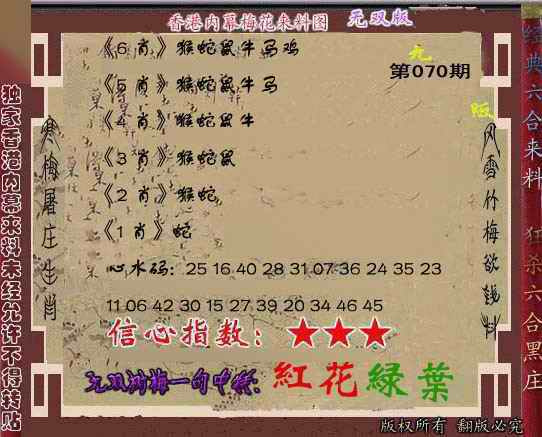 香港内幕梅花来料图 无双版
《6 肖》猴蛇鼠牛马鸡
无
第070期
《5 肖》猴蛇鼠牛马
《4 肖》猴蛇鼠牛
《3 肖》猴蛇鼠
《2 肖》猴蛇
《1 肖》蛇
心水码：25 16 40 28 31 07 36 24 35 23
11 06 42 30 15 27 39 20 34 46 45
信心指数：★★★
一句中特：紅花綠葉
版权所有 翻版必究
独家香港内幕来料未经允许不得转贴
寒梅屠庄生肖
风雪竹梅欲钱料
经典六合来料
狂杀六合黑庄